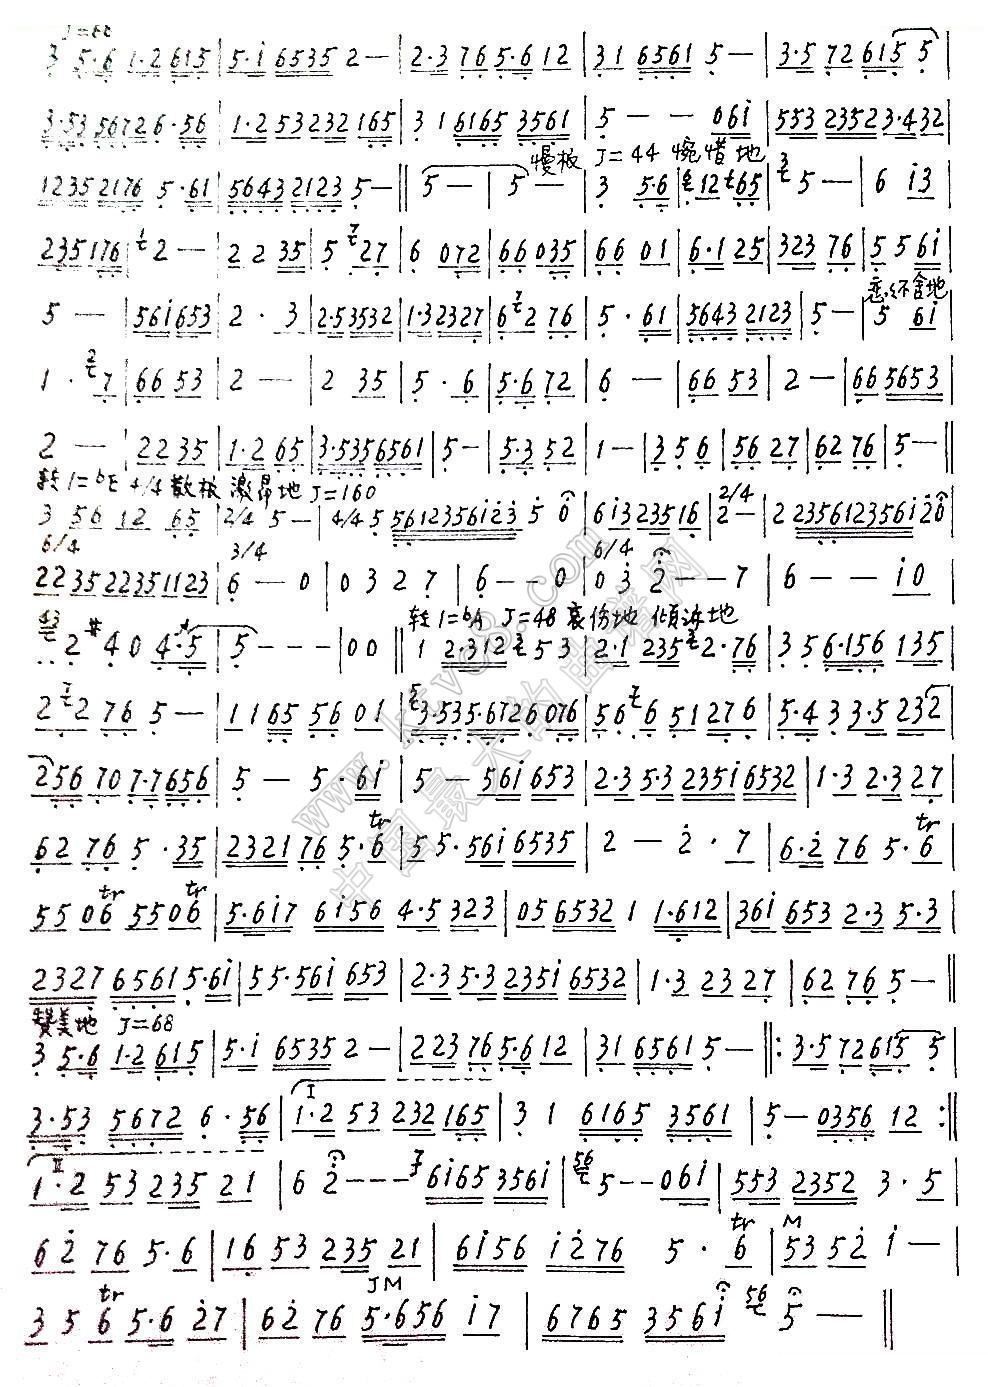 3 5·6 1·2 615 | 5·i 6535 2 — | 2·3 76 5·6 12 | 31 6561 5 — | 3·5 72 615 5 |
3·53 5672 6·56 | 1·2 53 232 165 | 3 1 6165 3561 | 5 — — 06i | 553 2352 3·432
慢板 J=44 惋惜地
1235 2176 5·61 | 56432123 5— ‖ 5 — | 5 — | 3 5·6 | 12 65 | 5 — | 6 i3 |
235176 | 2 — | 2 2 35 | 5 27 | 6 072 | 66 035 | 66 01 | 6·1 25 | 323 76 | 5 5 6i |
恋恋不舍地
5 — | 56i653 | 2 · 3 | 2·53532 | 1·32327 | 6 2 76 | 5 · 61 | 5643 2123 | 5 — | 5 6i
1 · 7 | 66 53 | 2 — | 2 35 | 5 · 6 | 5·6 72 | 6 — | 66 53 | 2 — | 66 5653
2 — | 22 35 | 1·2 65 | 3·5356561 | 5 — | 5·3 52 | 1 — | 3 5 6 | 56 27 | 62 76 | 5 — ‖
转1=bE 4/4 散板 激昂地 J=160
3 56 12 65 | 2/4 5 — | 4/4 5 56123561i23 5 0 | 6i323516 | 2/4 2 — | 2 2356123561i20 |
6/4 3/4 6/4
2235223511 23 | 6 — — 0 | 0 3 2 7 | 6 — — 0 | 0 3 2 — — 7 | 6 — — i0 |
转1=bA J=48 哀伤地 倾诉地
43 2 #4 0 4·5 | 5 — — — | 0 0 ‖ 1 2·312 5 3 | 2·1 235 2·76 | 3 5 6·156 135 |
2 2 76 5 — | 1 1 65 56 01 | 3·535·6726 076 | 56 6 51 276 | 5·4 3 3·5 232 |
256 70 7·7656 | 5 — 5·6i | 5 — 56i 653 | 2·3 5·3 235i 6532 | 1·3 2·3 27 |
62 76 5·35 | 2321 76 5·6 tr | 5 5·56i 6535 | 2 — 2·7 | 6·2 76 5·6 tr |
55 06 tr 55 06 tr | 5·6i7 6i56 4·5 323 | 05 6532 1 1·612 | 36i 653 2·3 5·3 |
2327 6561 5·6i | 55·56i 653 | 2·3 5·3 235i 6532 | 1·3 23 27 | 62 76 5 — ‖
赞美地 J=68
3 5·6 1·2 615 | 5·i 6535 2 — | 223 76 5·6 12 | 31 6561 5 — ‖: 3·5 72 615 5
3·53 5672 6·56 | I 1·2 53 232 165 | 3 1 6165 3561 | 5 — 0356 12 :‖
II 1·2 53 235 21 | 6 2 — — — 6i65 356i | 56 5 — — 06i | 553 2352 3·5 |
62 76 5·6 | 16 53 235 21 | 6i56 i276 5·6 tr | 53 52 i — |
3 5 6 tr 5·6 27 | 62 76 5·656 i7 | 6765 356i 56 5 — ‖
www.ktv8.com
中国最大的曲谱网